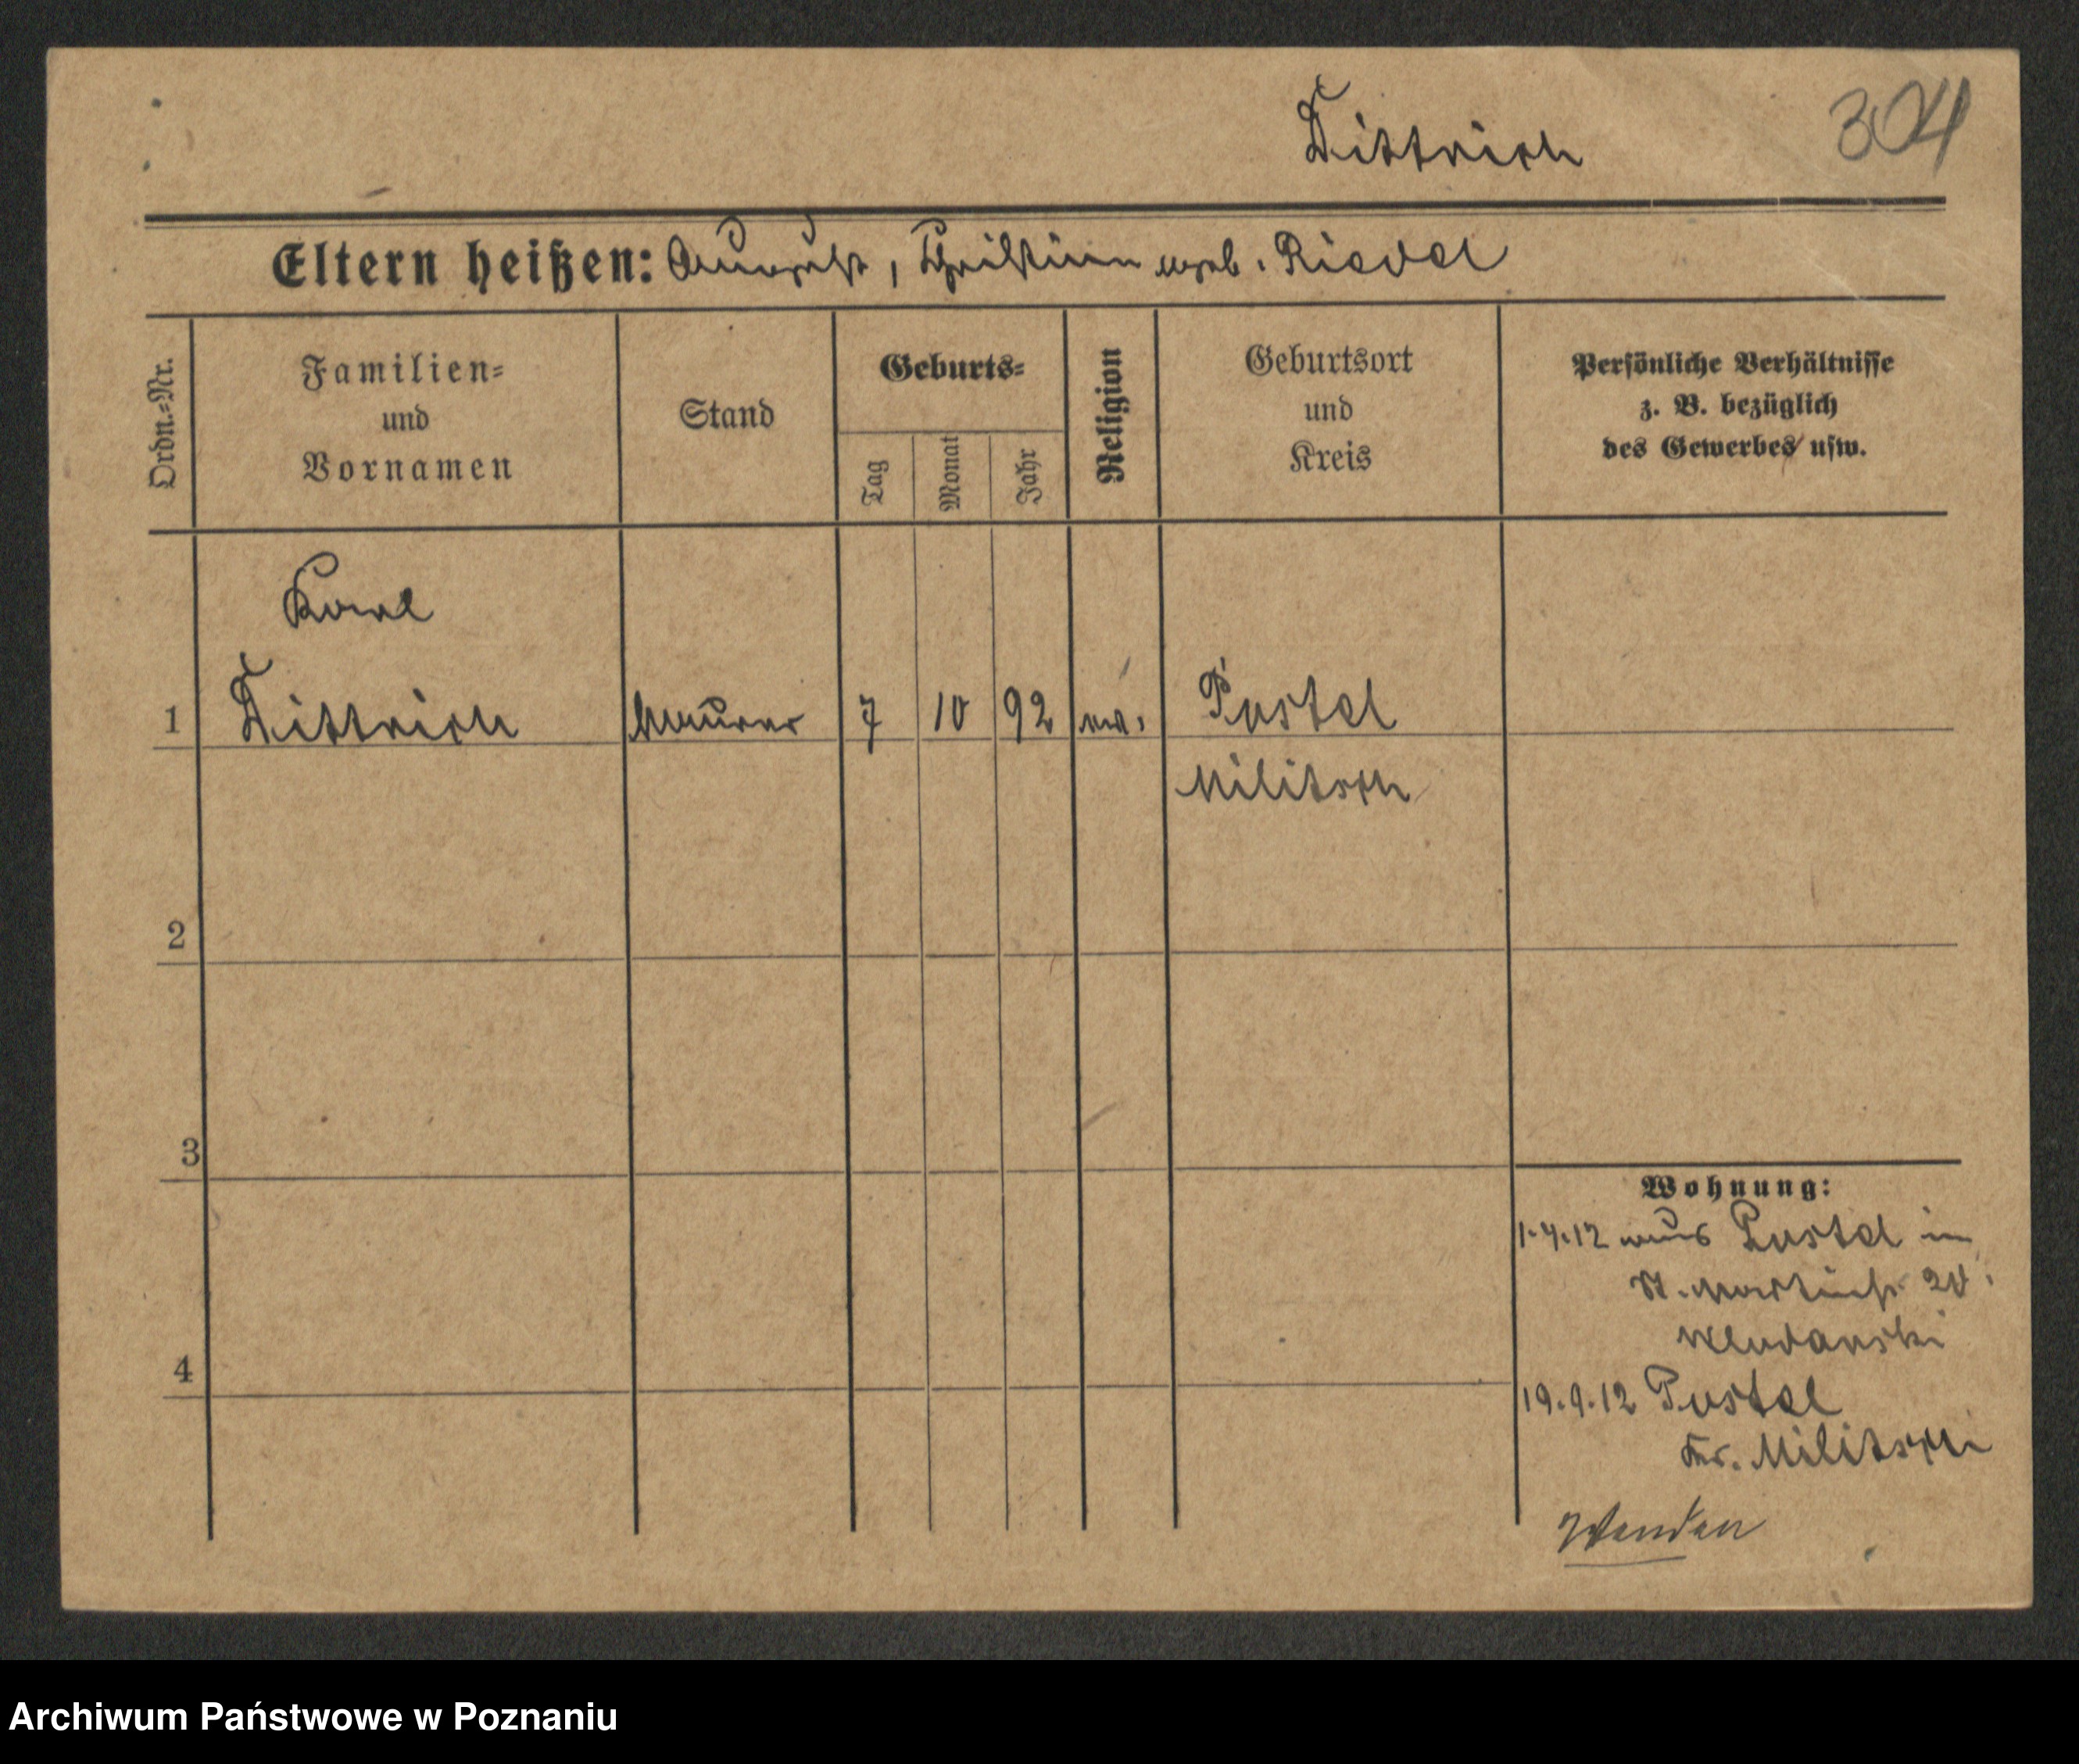 Dittrich
304
Eltern heißen: August, Christine geb. Riedel
Ordn.-Nr.
Familien-
und
Vornamen
Stand
Geburts-
Tag
Monat
Jahr
Religion
Geburtsort
und
Kreis
Persönliche Verhältnisse
z. B. bezüglich
des Gewerbes usw.
Karl
1 Dittrich Maurer 7 10 92 ev. Postel
Militsch
2
3
4
Wohnung:
1.4.12 aus Postel in
St. Martinstr. 20.
19.9.12 Postel
Kr. Militsch
Wenden
Archiwum Państwowe w Poznaniu